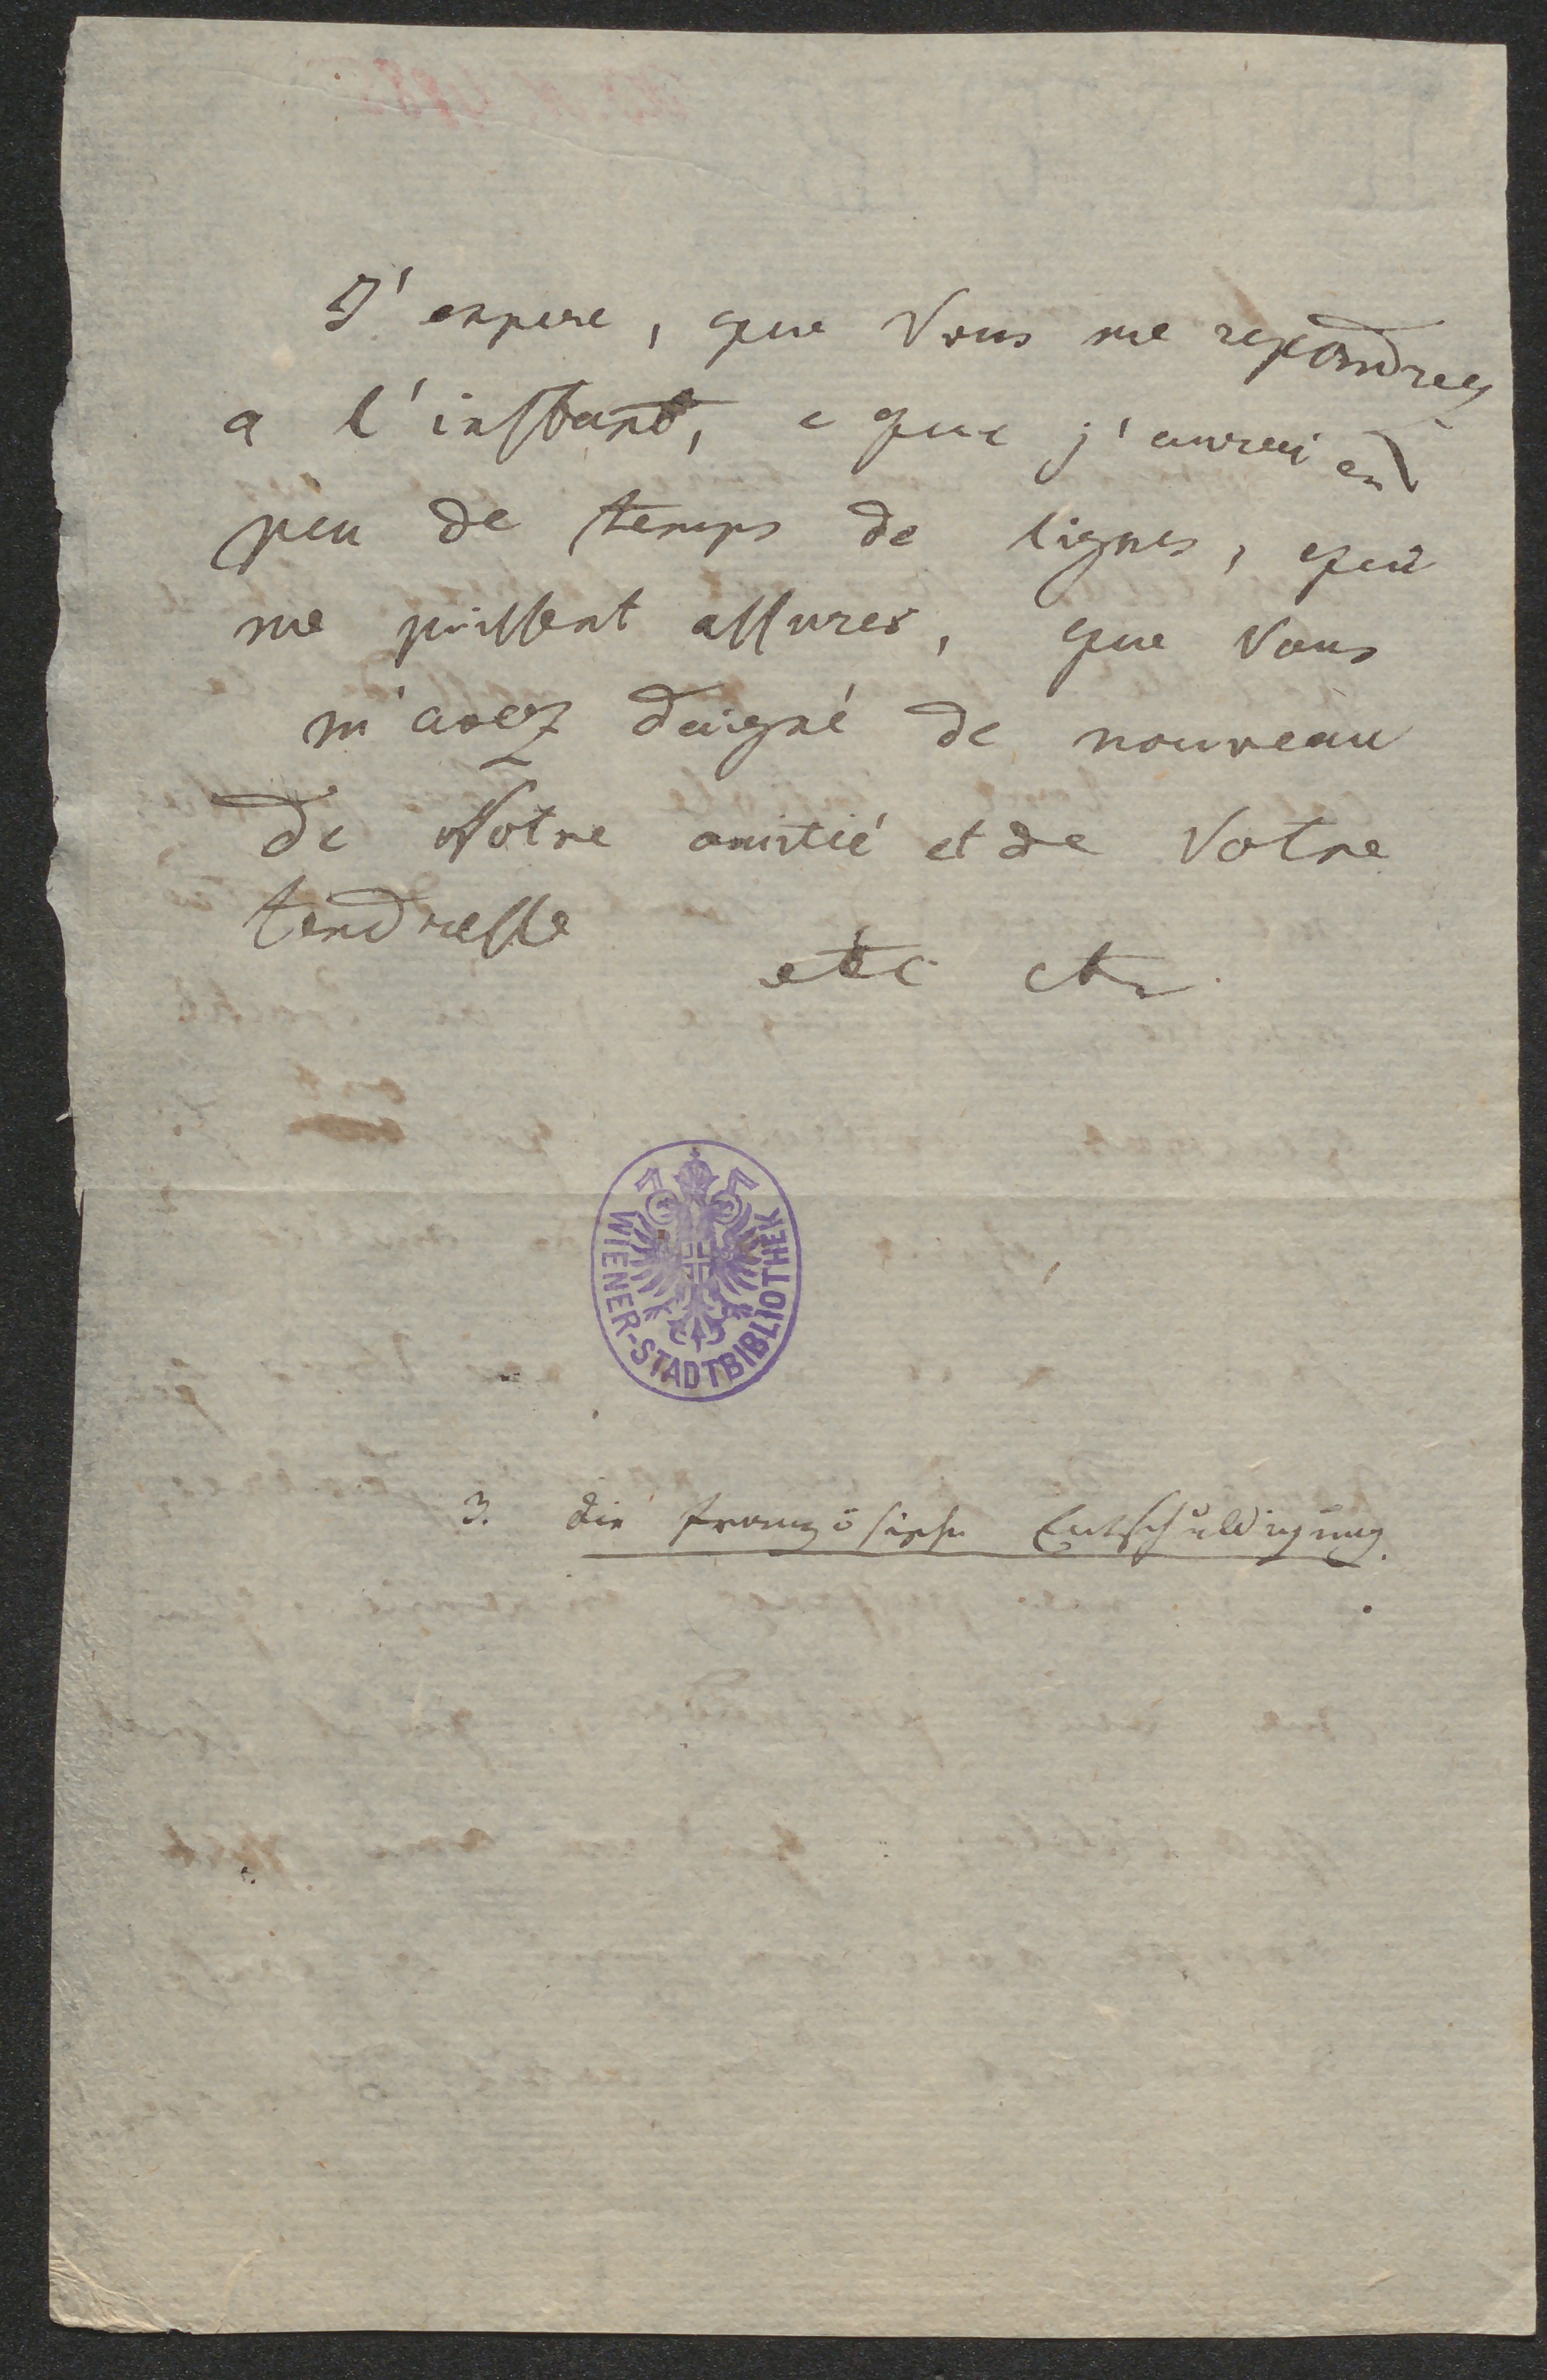 J'espere, que Vous me repondrez
a l'instant, e que j'aurai en
peu de temps de lignes, qui
me puissent assurer, que Vous
m'avez daigné de nouveau
de Votre amitié et de Votre
tendresse
etc etc.
WIENER-STADTBIBLIOTHEK
3. die französische Entschuldigung.